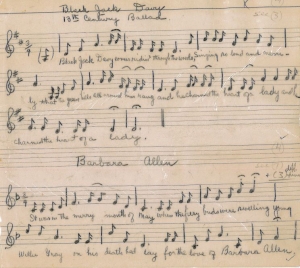 Black Jack Davy
13th Century Ballad
Black Jack Davy come ridin' through the woods, Singing so loud and
by that the green hills all round him rang and he charmed the heart of a lady and
charmed the heart of a lady.
Barbara Allen
It was in the merry month of May when the green buds were swelling young
Willie Gray on his death bed lay for the love of Barbara Allen